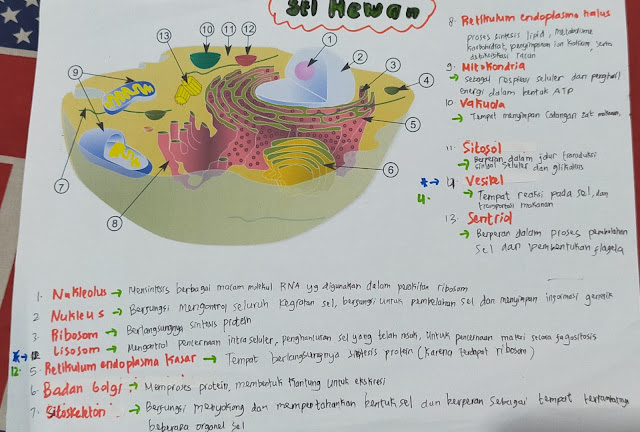 Sel Hewan
13
10
11
12
1
2
3
4
5
6
7
8
9
8. Retikulum endoplasma halus
proses sintesis lipid, metabolisme
karbohidrat, penyimpanan ion kalsium, serta
detoksifikasi racun
9. Mitokondria
→ sebagai respirasi seluler dan penghasil
energi dalam bentuk ATP
10. Vakuola
→ Tempat menyimpan cadangan zat makanan.
11. Sitosol
Berperan dalam jalur transduksi
sinyal seluler dan glikolisis
Vesikel
4. → Tempat reaksi pada sel, dan
transportasi makanan
13. Sentriol
→ Berperan dalam proses pembelahan
sel dan pembentukan flagela
1. Nukleolus → Mensintesis berbagai macam molekul RNA yg digunakan dalam perakitan ribosom
2 Nukleus → Berfungsi mengontrol seluruh kegiatan sel, berfungsi untuk pembelahan sel dan menyimpan informasi genetik
3. Ribosom → Berlangsungnya sintesis protein
Lisosom → Mengontrol pencernaan intraseluler, penghancuran sel yang telah rusak, Untuk pencernaan materi secara fagositosis
12. 5. Retikulum endoplasma kasar → Tempat berlangsungnya sintesis protein (karena terdapat ribosom)
6. Badan Golgi → Memproses protein, membentuk kantung untuk ekskresi
7. Sitoskeleton → Berfungsi menyokong dan mempertahankan bentuk sel dan berperan sebagai tempat tertanamnya
beberapa organel sel